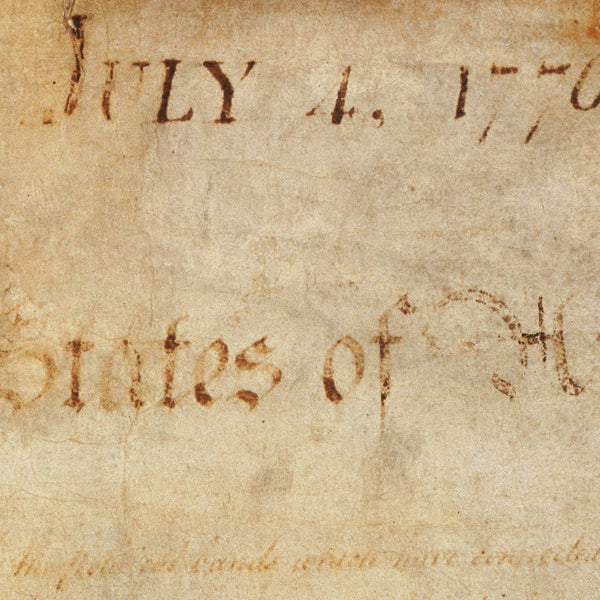 JULY 4, 1776
States of
the political bands which have connected